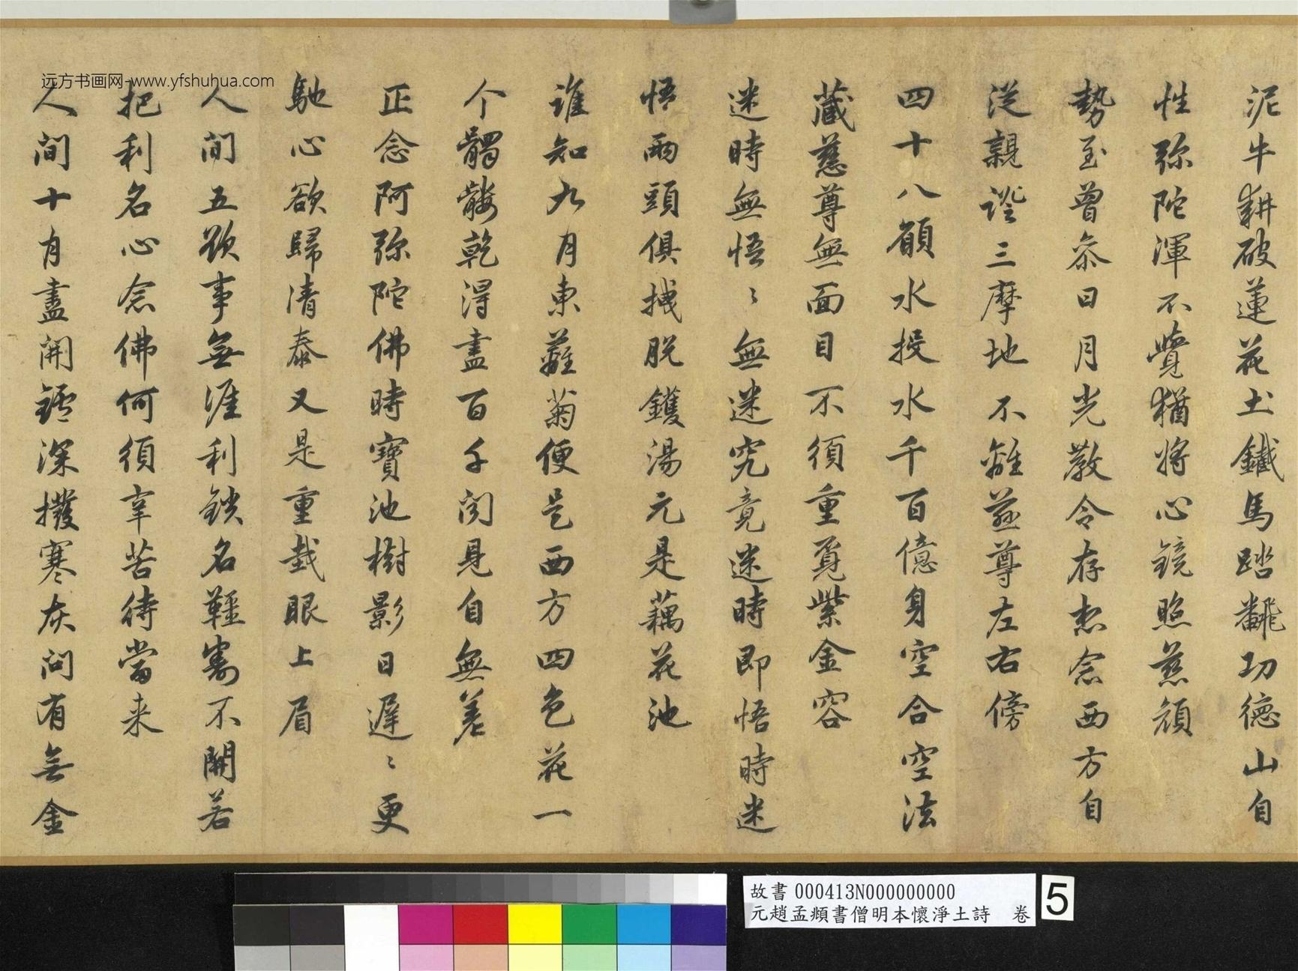 泥牛耕破蓮花土鐵馬踏飜功德山自
性弥陀渾不覺猶將心鏡照慈顔
勢至曾叅日月光教令存想念西方自
從親證三摩地不離慈尊左右傍
四十八願水投水千百億身空合空法
藏慈尊無面目不須重覓紫金容
迷時無悟〻無迷究竟迷時即悟時迷
悟兩頭俱拽脫鑊湯元是藕花池
誰知九月東蘺菊便是西方四色花一
个髑髏乾得盡百千闻見自無差
正念阿弥陀佛時寶池樹影日遲〻更
馳心欲歸清泰又是重栽眼上眉
人間五欲事無涯利鎖名韁割不開若
把利名心念佛何須辛苦待當来
人間十月盡開鑪深撥寒灰问有無金
远方书画网-www.yfshuhua.com
故書 000413N000000000
元趙孟頫書僧明本懷淨土詩 卷
5